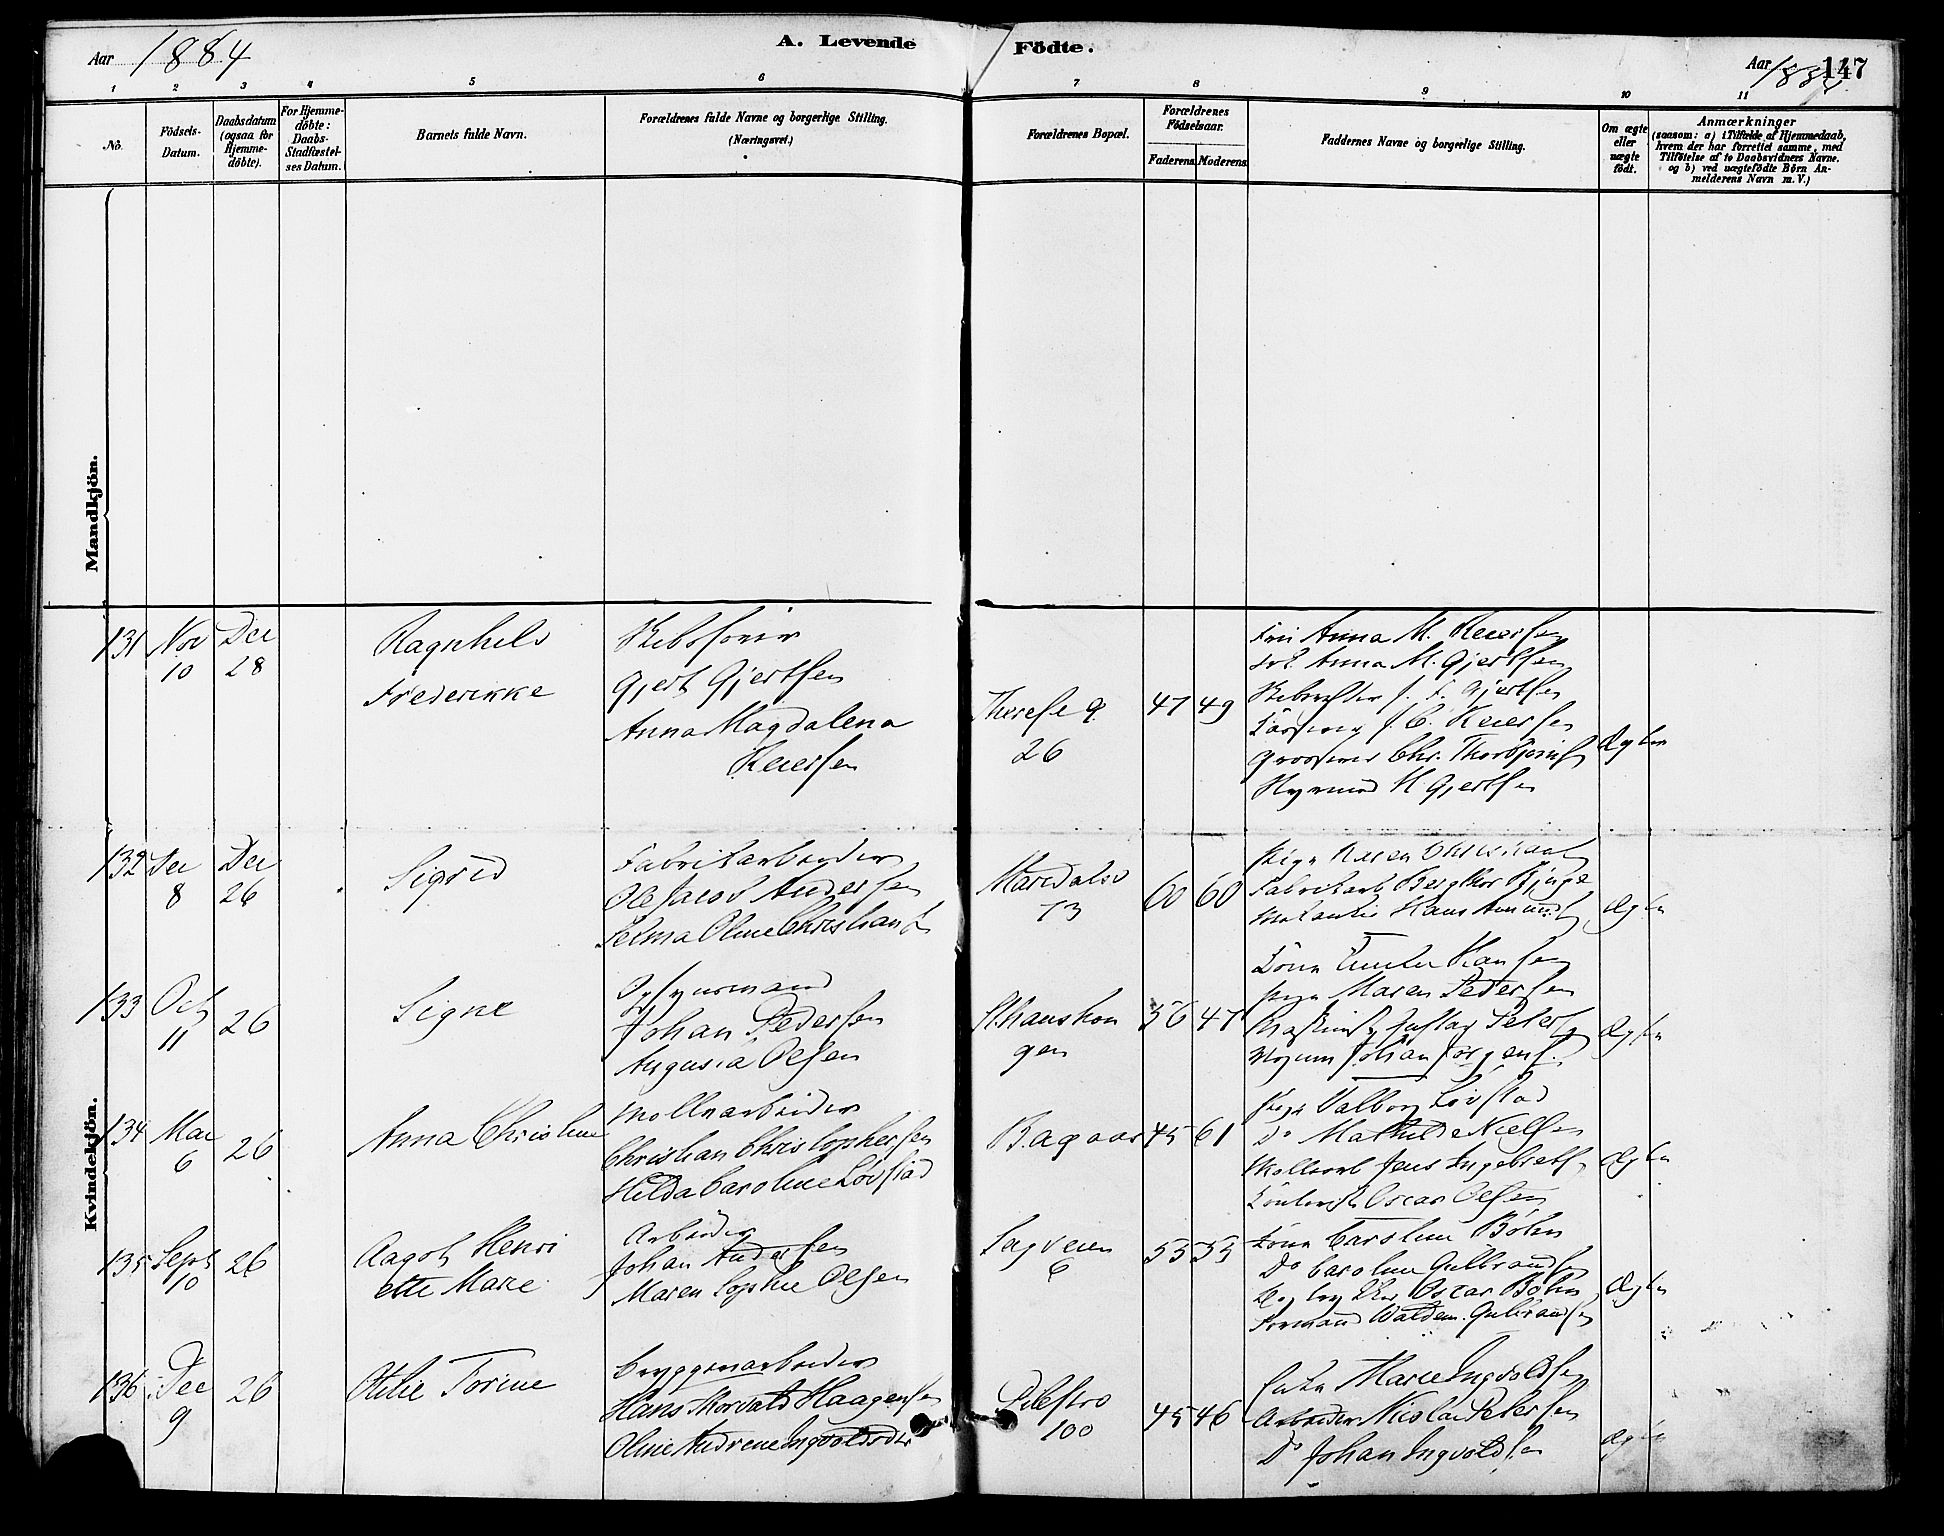 Aar 1884
A. Levende Födte.
Aar 1884
147
1 2 3 4 5 6 7 8 9 10 11
No.
Födsels-
Datum.
Daabsdatum
(ogsaa for
Hjemme-
döbte).
For Hjemme-
döbte:
Daabs-
Stadfæstel-
ses Datum.
Barnets fulde Navn.
Forældrenes fulde Navne og borgerlige Stilling.
(Næringsvei.)
Forældrenes Bopæl.
Forældrenes
Födselsaar.
Faderens. Moderens.
Faddernes Navne og borgerlige Stilling.
Om ægte
eller
uægte
födt.
Anmærkninger
(saasom: a) i Tilfælde af Hjemmedaab,
hvem der har forrettet samme, med
Tilföielse af to Daabsvidners Navne.
og b) ved uægtefödte Börn An-
melderens Navn m. V.)
Mandkjön.
Kvindekjön.
131
Nov
10
Dec
28
Ragnhild
Frederikke
Gjert Gjertsen
Anna Magdalena
Reiersen
Therese g
26
47 49
Fru Anna M. Reiersen
Frk. Anna M. Gjertsen
J. F. Gjertsen
J. C. Reiersen
Grosserer Chr. Thorbjørns
Styrmd H Gjertsen
Ægte
132
Dec
8
Dec
26
Sigrid
Fabrikarbeider
Ole Jacob Andersen
Selma Oline Christians
Maridalsv
73
60 60
Pige Karen Christians
Fabrikarb Bergthor
Hans Amunds
Ægte
133
Oct
11
26
Signe
Opsynsmand
Johan Pedersen
Augusta Olsen
St. Hanshau
gen
36 47
Kone Emilie Hansen
Pige Maren Pedersen
Gustav Peters
Johan Jörgens.
Ægte
134
Mai
6
26
Anna Christine
Möllearbeider
Christian Christophersen
Hilda Caroline Löfstad
Bagaas
45 61
Pige Valborg Löfstad
Do Mathilde Nielsen
Möllearb Jens Ingebrets
Oscar Olsen
Ægte
135
Sept
10
26
Aagot Henri
ette Marie
Arbeider
Johan Andersen
Maren Sophie Olsen
Sagveien
6
55 55
Kone Caroline Böhn
Do Caroline Gulbrandsen
Oscar Böhn
Formand Waldem. Gulbrands
Ægte
136
Dec
9
26
Otilie Torine
Bryggeriarbeider
Hans Thorvald Haagensen
Oline Andrene Ingvoldsdr
Pilestro
100
45 46
Enke Marie Ingvoldsen
Arbeider Nicolai Petersen
Do Johan Ingvoldsen
Ægte